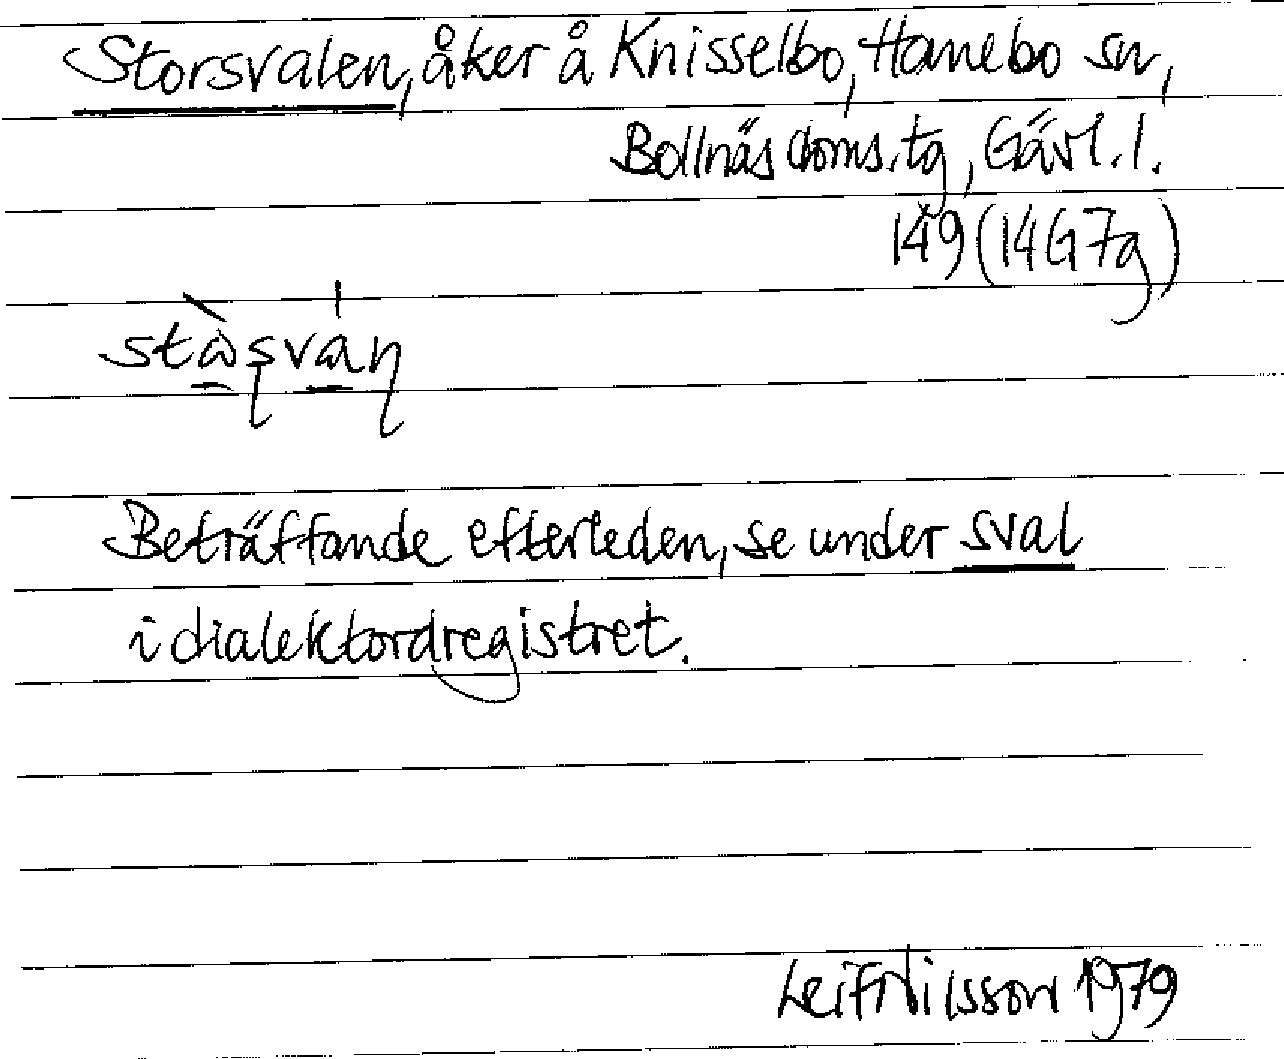 Storsvalen, åker å Knisselbo, Hanebo sn,
Bollnäs doms.tg, Gävl. l.
149 (14G7g)
Beträffande efterleden, se under sval
i dialektordregistret.
Leif Nilsson 1979